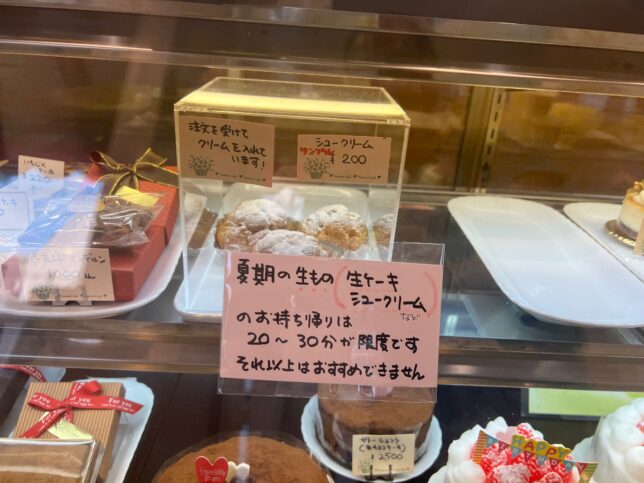 注文を受けて
クリームを入れて
います!
シュークリーム
サンプル
¥200
いちじく
¥220
1000
夏期の生もの(生ケーキ
シュークリーム)
など
のお持ち帰りは
20〜30分が限度です
それ以上はおすすめできません
For you
For you
For you
ガトーショコラ
¥2500
Especially
for you
HAPPY